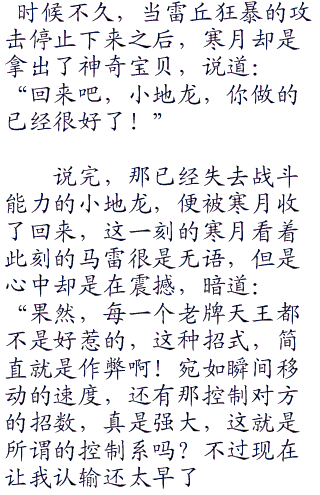 时候不久，当雷丘狂暴的攻
击停止下来之后，寒月却是
拿出了神奇宝贝，说道：
“回来吧，小地龙，你做的
已经很好了！”
说完，那已经失去战斗
能力的小地龙，便被寒月收
了回来，这一刻的寒月看着
此刻的马雷很是无语，但是
心中却是在震撼，暗道：
“果然，每一个老牌天王都
不是好惹的，这种招式，简
直就是作弊啊！宛如瞬间移
动的速度，还有那控制对方
的招数，真是强大，这就是
所谓的控制系吗？不过现在
让我认输还太早了